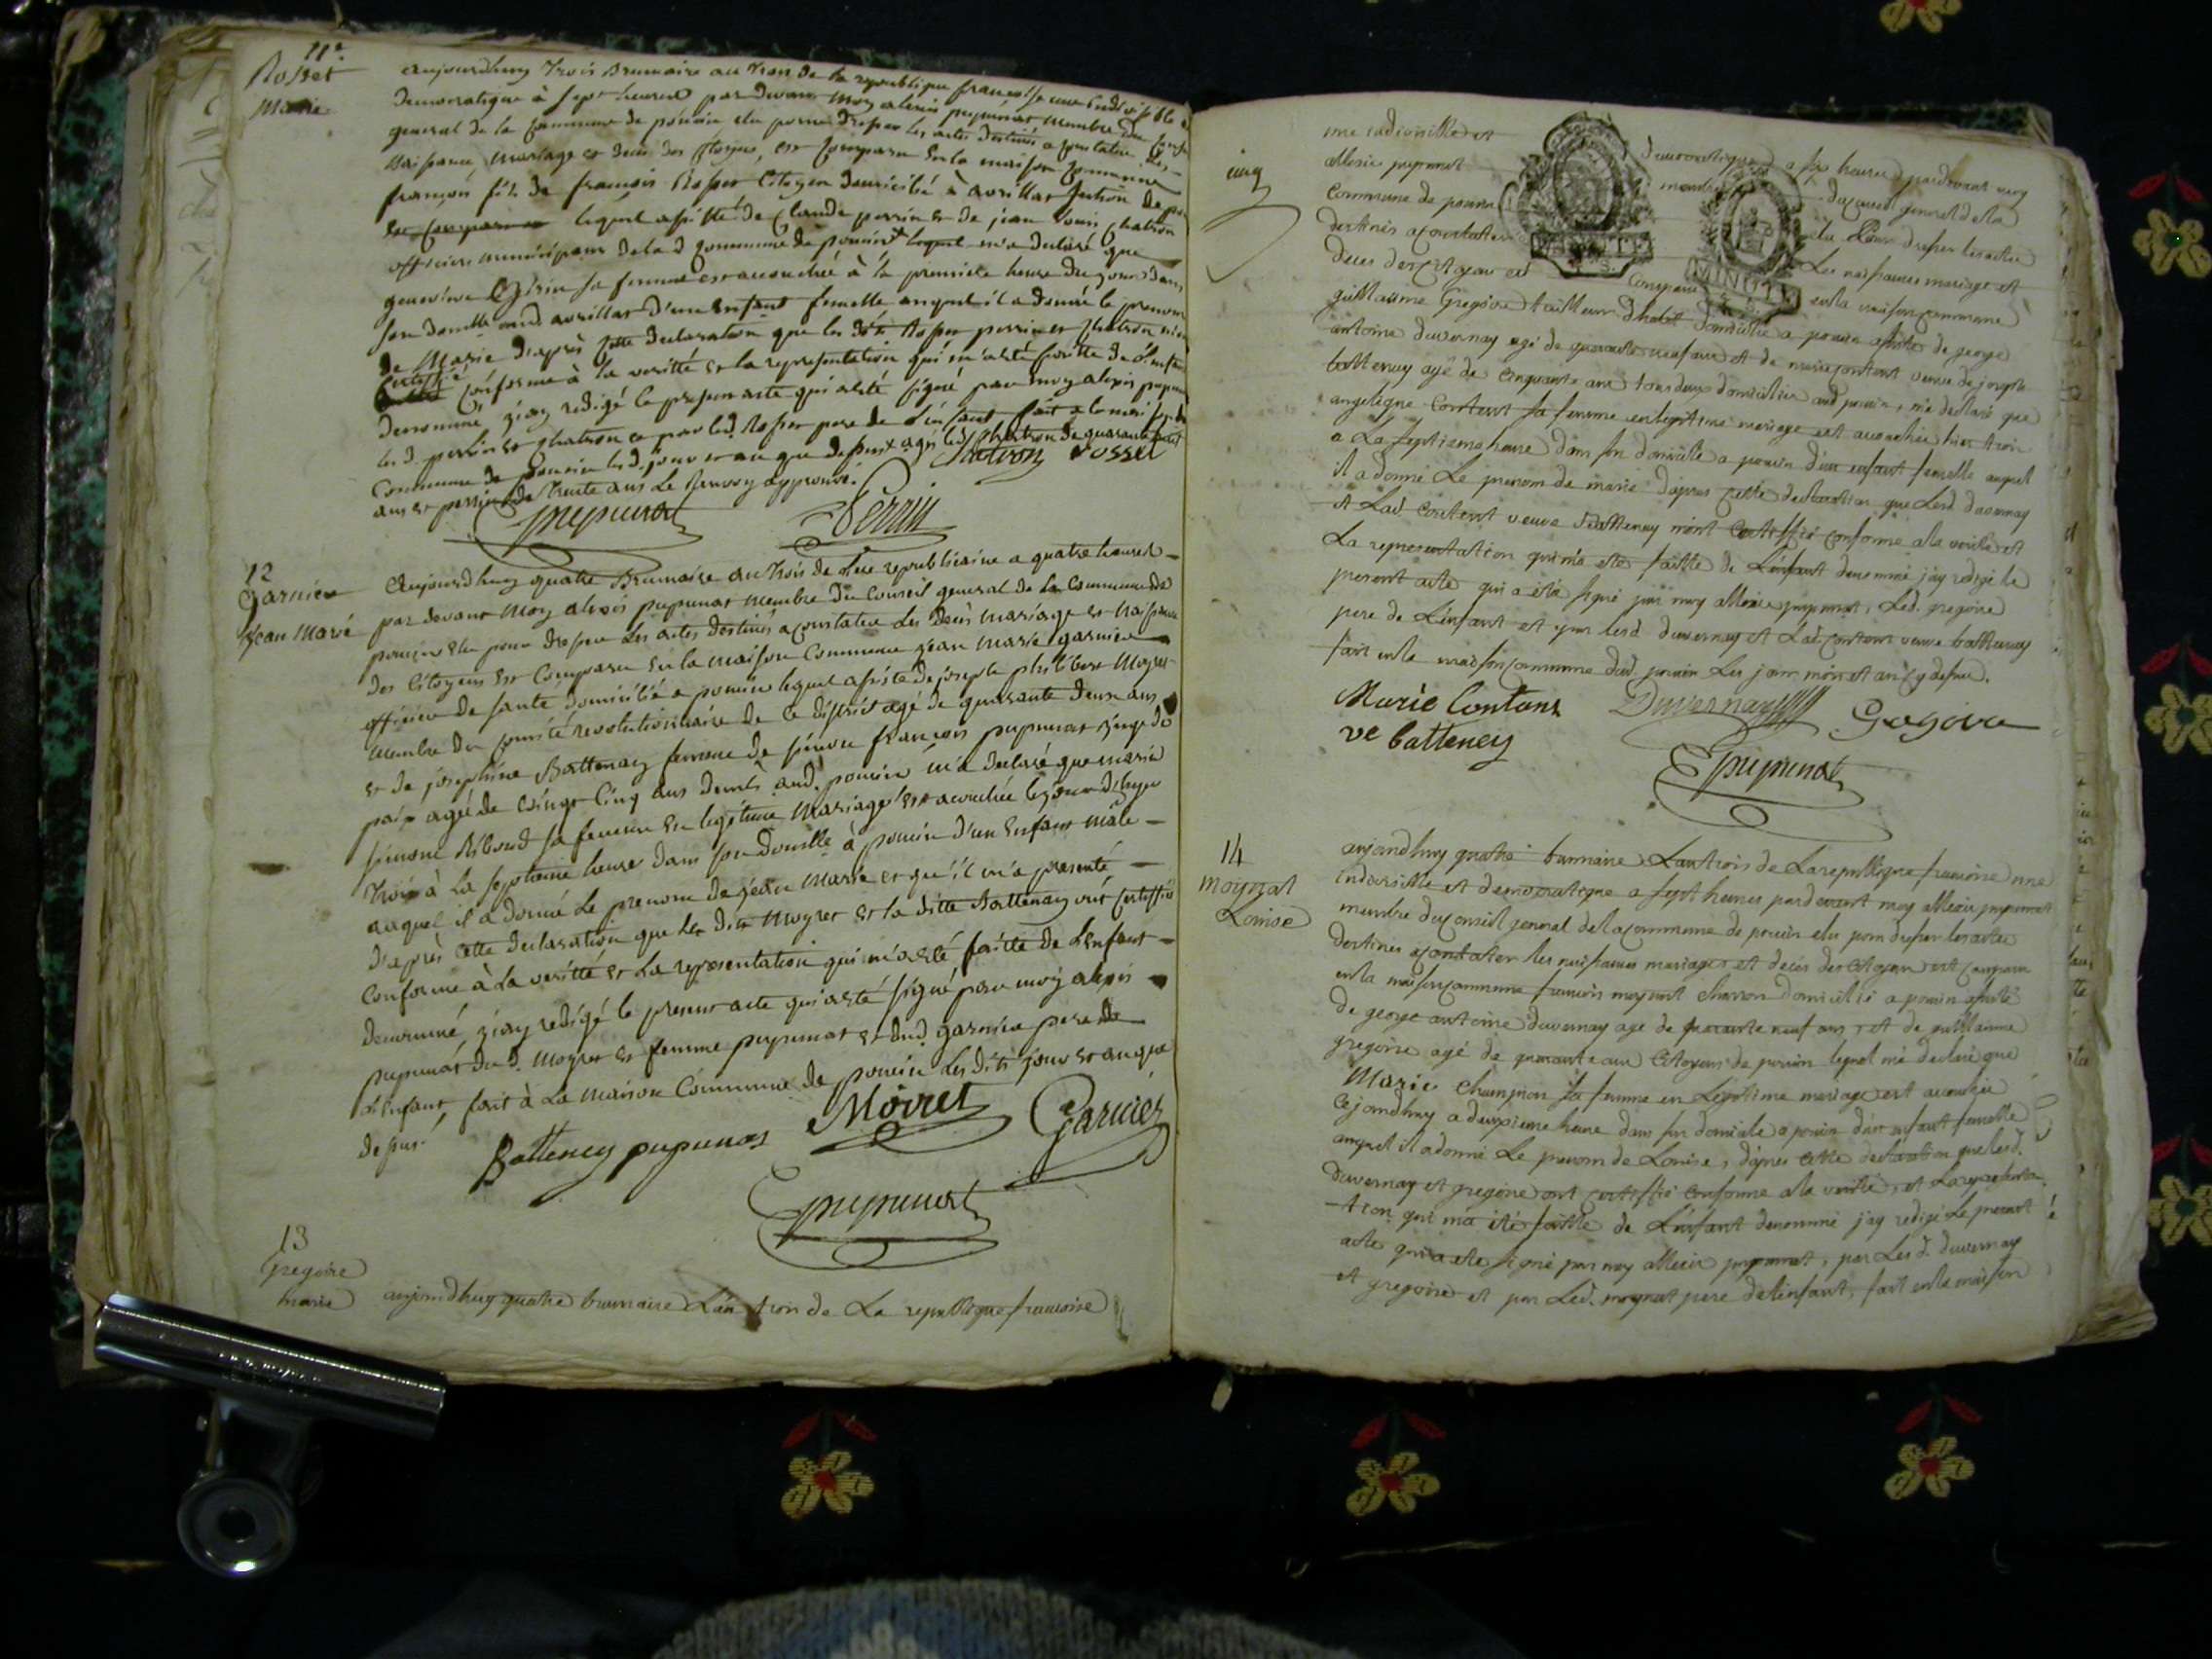 11e
Rosset
Marie
aujourdhuy trois Brumaire an trois de la republique francoise une indivisible et
democratique à sept heures par devant moy alexis pupunat membre du conseil
general de la commune de poncin elu pour dresser les actes destinés a constater les
naissance mariage et deces des citoyens, est comparu en la maison commune
françois fils de francois Rosset citoyen domicilié à avrillat section de
lequel assisté de Claude perrin et de jean louis chatron
officiers municipaux de lad commune de poncin m'a declaré que
genevieve sa femme est accouchée à la premiere heure du jour dans
son domille aud avrillat d'un enfant femelle auquel il a donné le prenom
de Marie d'après cette declaration que les dits perrin et chatron
certifié conforme à la verité et la representation qui m'a eté faitte de l'enfant
denommé j'ay redigé le present acte qui a eté signé par moy alexis pupunat
les d. perrin et chatron et par led. Rosset pere de l'enfant fait a la maison
commune de poncin les d. jour et an que dessus agé led chatron de quarante
ans et perrin de trente ans Le Renvoy approuvé.
Chatron Rosset
pupunat Perrin
12
Garnier
Jean Marie
Aujourdhuy quatre Brumaire an trois de l'ere republicaine a quatre heures
par devant moy alexis pupunat membre du Conseil general de la Commune de
poncin elu pour dresser les actes destinés a constater les decès mariage et naissance
des Citoyens est comparu en la maison Commune jean Marie garnier
officier de santé domicilié a poncin lequel assisté de joseph philibert Moyret
membre du comité revolutionnaire de ce district agé de quarante deux ans
et de josephine Battenay femme de simon françois pupunat juge de
paix agée de vingt cinq ans demts aud. poncin m'a declaré que marie
simone Riboud sa femme en legitime Mariage est accouchée le jour d'hyer
trois à la septieme heure dans son domille à poncin d'un Enfant mâle
auquel il a donné le prenom de jean Marie et qu'il m'a presenté,
D'après cette declaration que les dits Moyret et la ditte Battenay ont certiffié
conforme à la verité et la representation qui m'a eté faitte de l'Enfant
denommé, j'ay redigé le present acte qui a eté signé par moy alexis
pupunat du d. Moyret et femme pupunat et dud. garnier pere de
l'Enfant, fait à la maison Commune de poncin les dits jour et an que
dessus.
Battenay pupunas Moiret Garnier
pupunat
13
Gregoire
marie
aujourdhuy quatre brumaire L'an trois de La republique francoise
cinq
une indivisible et democratique a six heures pardevant moy
allexis pupunat membre du conseil general de la
commune de poncin elu pour dresser les actes
destinés a constater les naissances mariage et
deces des citoyens est comparu en la maison commune
guillaume Gregoire tailleur d'habit domicilié a poncin assisté de george
antoine duvernay agé de quarante neuf ans et de marie contant veuve de joseph
battenay agé de cinquante ans tous deux domiciliés aud poncin, m'a declaré que
angelique Contant sa femme en legitime mariage est accouchée hier trois
a La septieme heure dans son domicille a poncin d'un enfant femelle auquel
il a donné Le prenom de marie d'apres cette declaration que Led duvernay
et Lad contant veuve Battenay m'ont certiffié conforme a la verité et
La representation qui m'a eté faitte de L'enfant denommé j'ay redigé le
present acte qui a été signé par moy allexis pupunat, Led. gregoire
pere de L'enfant et par lesd duvernay et Lad. contant veuve battenay
fait en la maison commune dud. poncin Les jour mois et an cy dessus.
Marie Contant Duvernay Gregoire
ve batteney
pupunat
14
Moynat
Louise
aujourdhuy quatre brumaire L'an trois de La republique francoise une
indivisible et democratique a sept heures pardevant moy allexis pupunat
membre du conseil general de la commune de poncin elu pour dresser les actes
destinés a constater les naissances mariages et décès des citoyens est comparu
en la maison commune francois moynat charron domicilié a poncin assisté
de george antoine duvernay age de quarante neuf ans, et de guillaume
gregoire agé de quarante ans citoyens de poncin lequel m'a declaré que
Marie champion sa femme en Légitime mariage est accouchée
cejourdhuy a deuxieme heure dans son domicile a poncin d'un enfant femelle
auquel il a donné Le prenom de Louise, d'après cette declaration que lesd.
duvernay et gregoire ont certiffié conforme a la verité, et La representa
-tion qui m'a été faitte de L'enfant denommé j'ay redigé Le present
acte qui a ete signé par moy allexis pupunat, par Les d. duvernay
et gregoire et par Led. moynat pere de l'enfant, fait en la maison